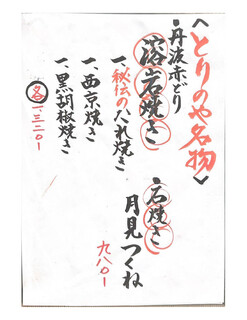 <とりのや名物>
・丹波赤どり
溶岩焼き
一、秘伝のたれ焼き
一、西京焼き
一、黒胡椒焼き
各一、三二〇ー
・石焼き
月見つくね
九八〇ー